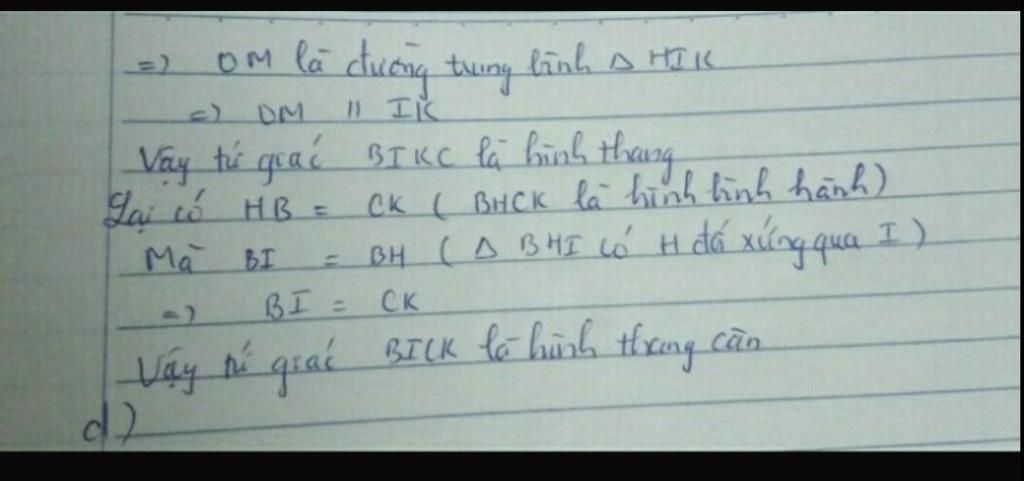 => DM là đường trung bình Δ HIK
=> DM // IK
Vậy tứ giác BIKC là hình thang
Lại có HB = CK ( BHCK là hình bình hành )
Mà BI = BH ( Δ BHI có H đố xứng qua I )
=> BI = CK
Vậy tứ giác BICK là hình thang cân
d)